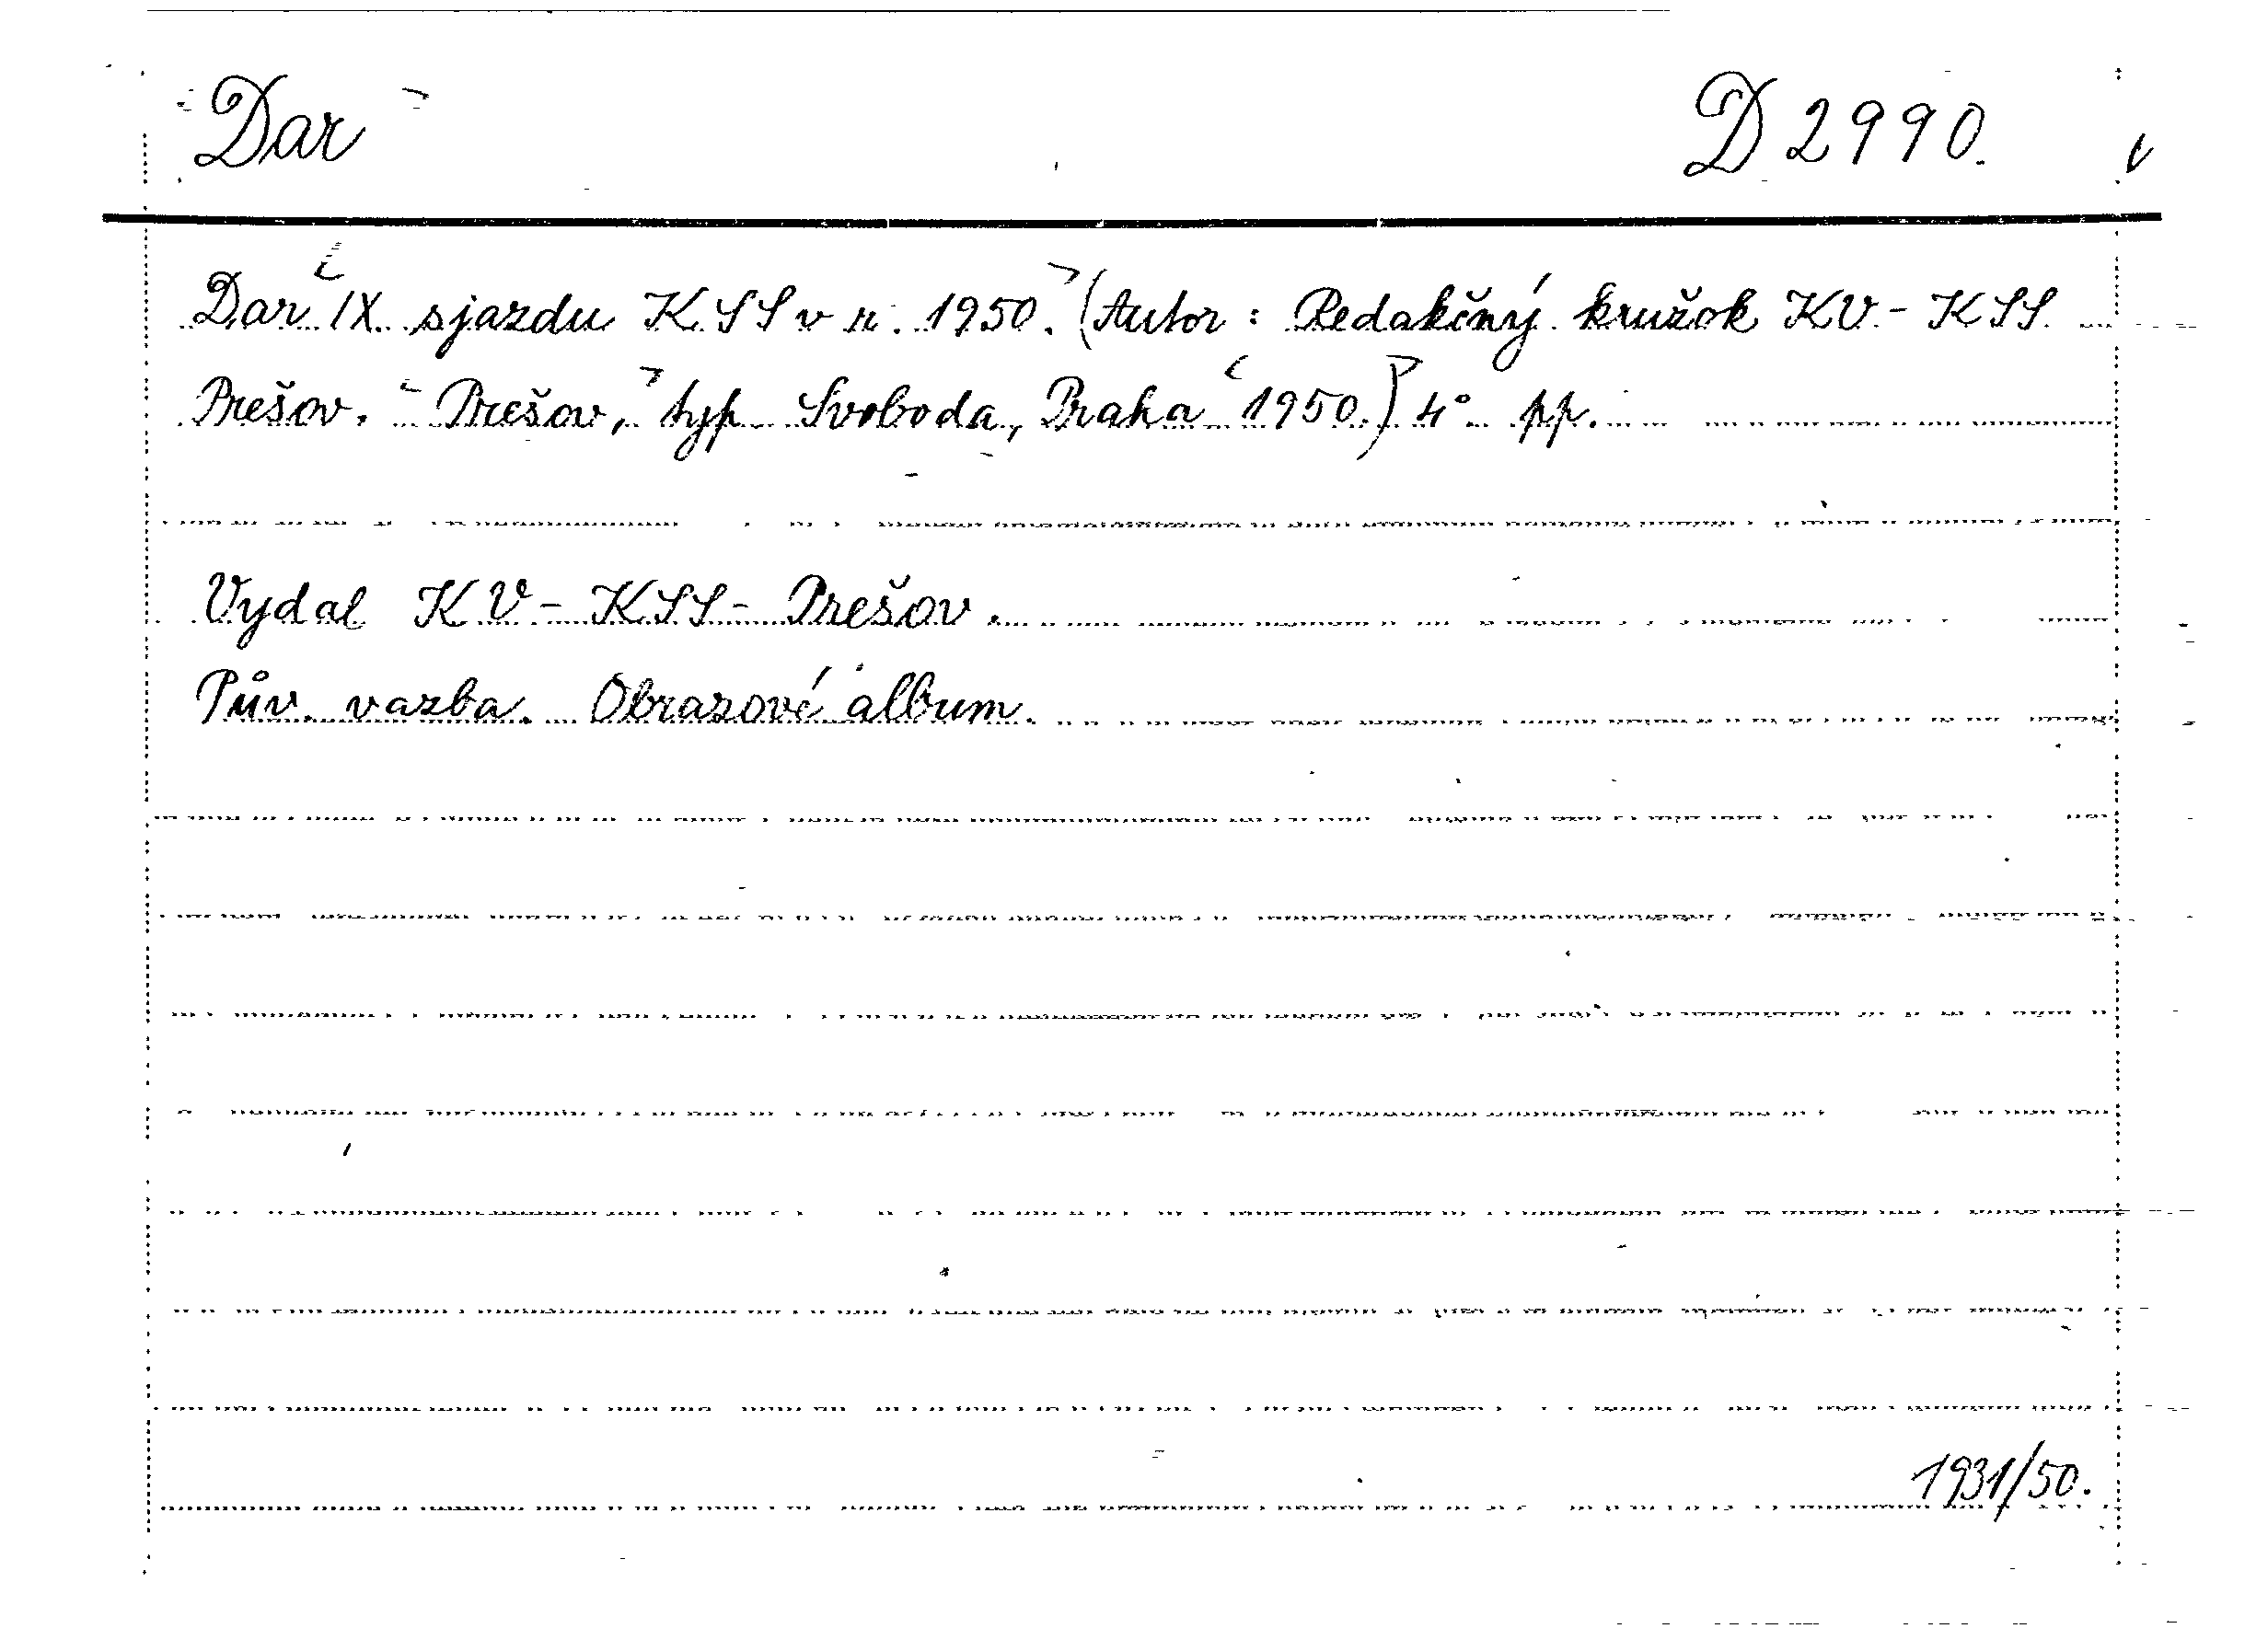 Dar D 2990.
Dar IX. sjazdu KSS v r. 1950. (Autor: Redakčný kružok KV.- KSS
Prešov. - Prešov, typ Svoboda, Praha 1950.) 4° pp.
Vydal KV - KSS - Prešov.
Pův. vazba. Obrazové album.
1931/50.